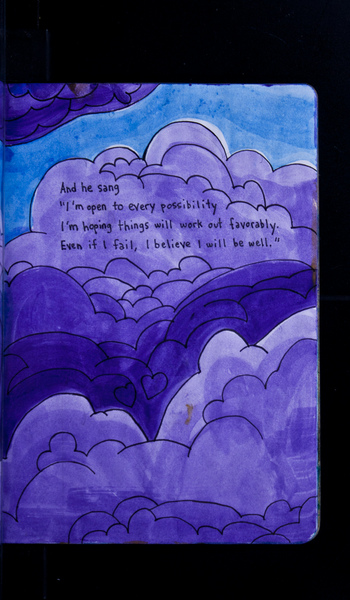 And he sang
"I'm open to every possibility
I'm hoping things will work out favorably.
Even if I fail, I believe I will be well."